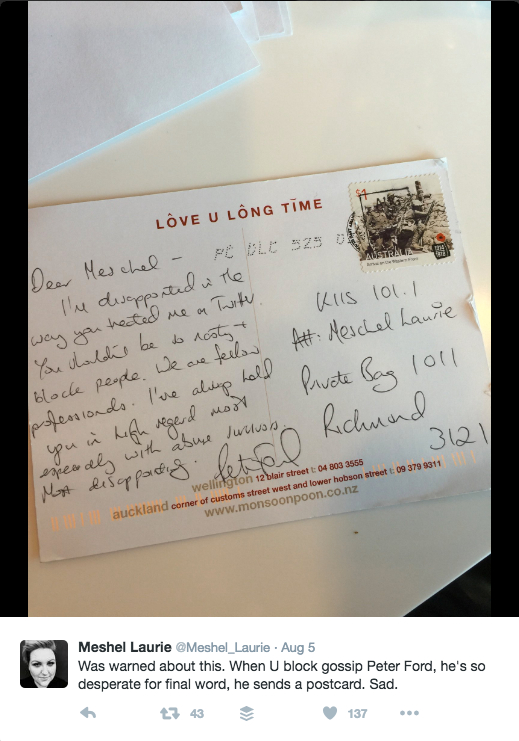 LÔVE U LÔNG TĪME
PC DLC 525
$1
AUSTRALIA
Dear Meschel –
I'm disappointed in the
way you treated me on Twitter.
You shouldn't be so nasty +
block people. We are fellow
professionals. I've always held
you in high regard most
especially with abuse survivors.
Most disappointing. Peter Ford
KIIS 101.1
Att: Meschel Laurie
Private Bag 1011
Richmond
3121
wellington 12 blair street t: 04 803 3555
auckland corner of customs street west and lower hobson street t: 09 379 9311
www.monsoonpoon.co.nz
Meshel Laurie @Meshel_Laurie · Aug 5
Was warned about this. When U block gossip Peter Ford, he's so
desperate for final word, he sends a postcard. Sad.
43 137